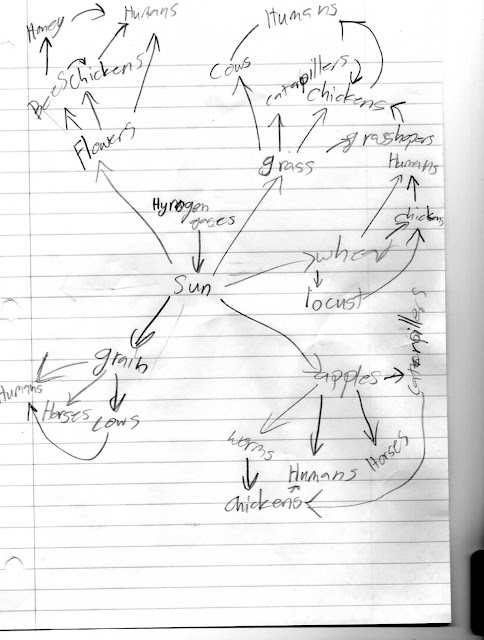 Honey
Humans
Humans
Bees
Chickens
Cows
caterpillers
chickens
Flowers
grass
grasshopers
Humans
Hyrogen
gases
chickens
wheat
Sun
locust
grain
apples
caterpillers
Humans
Horses
Cows
worms
Humans
Horses
chickens